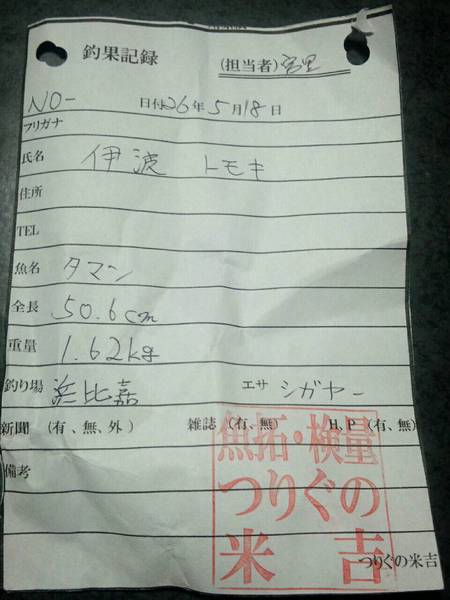 釣果記録 (担当者) 宮里
NO- 日付26年5月18日
フリガナ
氏名 伊波 トモキ
住所
TEL
魚名 タマン
全長 50.6cm
重量 1.62kg
釣り場 浜比嘉 エサ シガヤー
新聞 (有、無、外) 雑誌 (有、無) H.P (有、無)
備考
魚拓・検量
つりぐの
米吉
つりぐの米吉